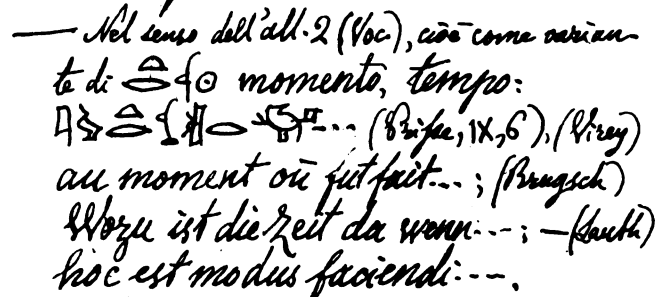 — Nel senso dell'all. 2 (Voc.), cioè come varian-
te di momento, tempo:
--- (Prisse, IX, 6), (Virey)
au moment où fut fait...; (Brugsch)
Wozu ist die Zeit da wenn---; — (Lauth)
hoc est modus faciendi---.